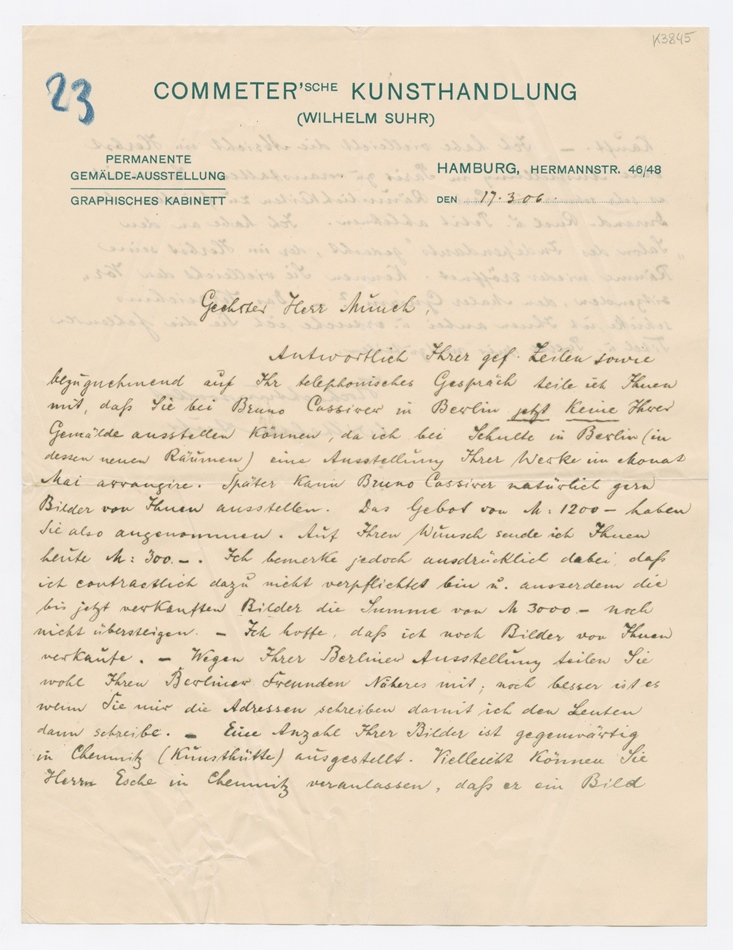 K3845
23
COMMETER'SCHE KUNSTHANDLUNG
(WILHELM SUHR)
PERMANENTE
GEMÄLDE-AUSSTELLUNG
GRAPHISCHES KABINETT
HAMBURG, HERMANNSTR. 46/48
DEN 17.3.06.
Geehrter Herr Munch,
Antwortlich Ihrer gef. Zeilen sowie
bezugnehmend auf Ihr telephonisches Gespräch teile ich Ihnen
mit, daß Sie bei Bruno Cassirer in Berlin jetzt keine Ihrer
Gemälde ausstellen können, da ich bei Schulte in Berlin (in
dessen neuen Räumen) eine Ausstellung Ihrer Werke im Monat
Mai arrangire. Später kann Bruno Cassirer natürlich gern
Bilder von Ihnen ausstellen. Das Gebot von M: 1200 – haben
Sie also angenommen. Auf Ihren Wunsch sende ich Ihnen
heute M: 300.–. Ich bemerke jedoch ausdrücklich dabei, daß
ich contractlich dazu nicht verpflichtet bin u. ausserdem die
bis jetzt verkauften Bilder die Summe von M 3000 – noch
nicht übersteigen. – Ich hoffe, daß ich noch Bilder von Ihnen
verkaufe. – Wegen Ihrer Berliner Ausstellung teilen Sie
wohl Ihren Berliner Freunden Näheres mit; noch besser ist es
wenn Sie mir die Adressen schreiben damit ich den Leuten
dann schreibe. – Eine Anzahl Ihrer Bilder ist gegenwärtig
in Chemnitz (Kunsthütte) ausgestellt. Vielleicht können Sie
Herrn Esche in Chemnitz veranlassen, daß er ein Bild